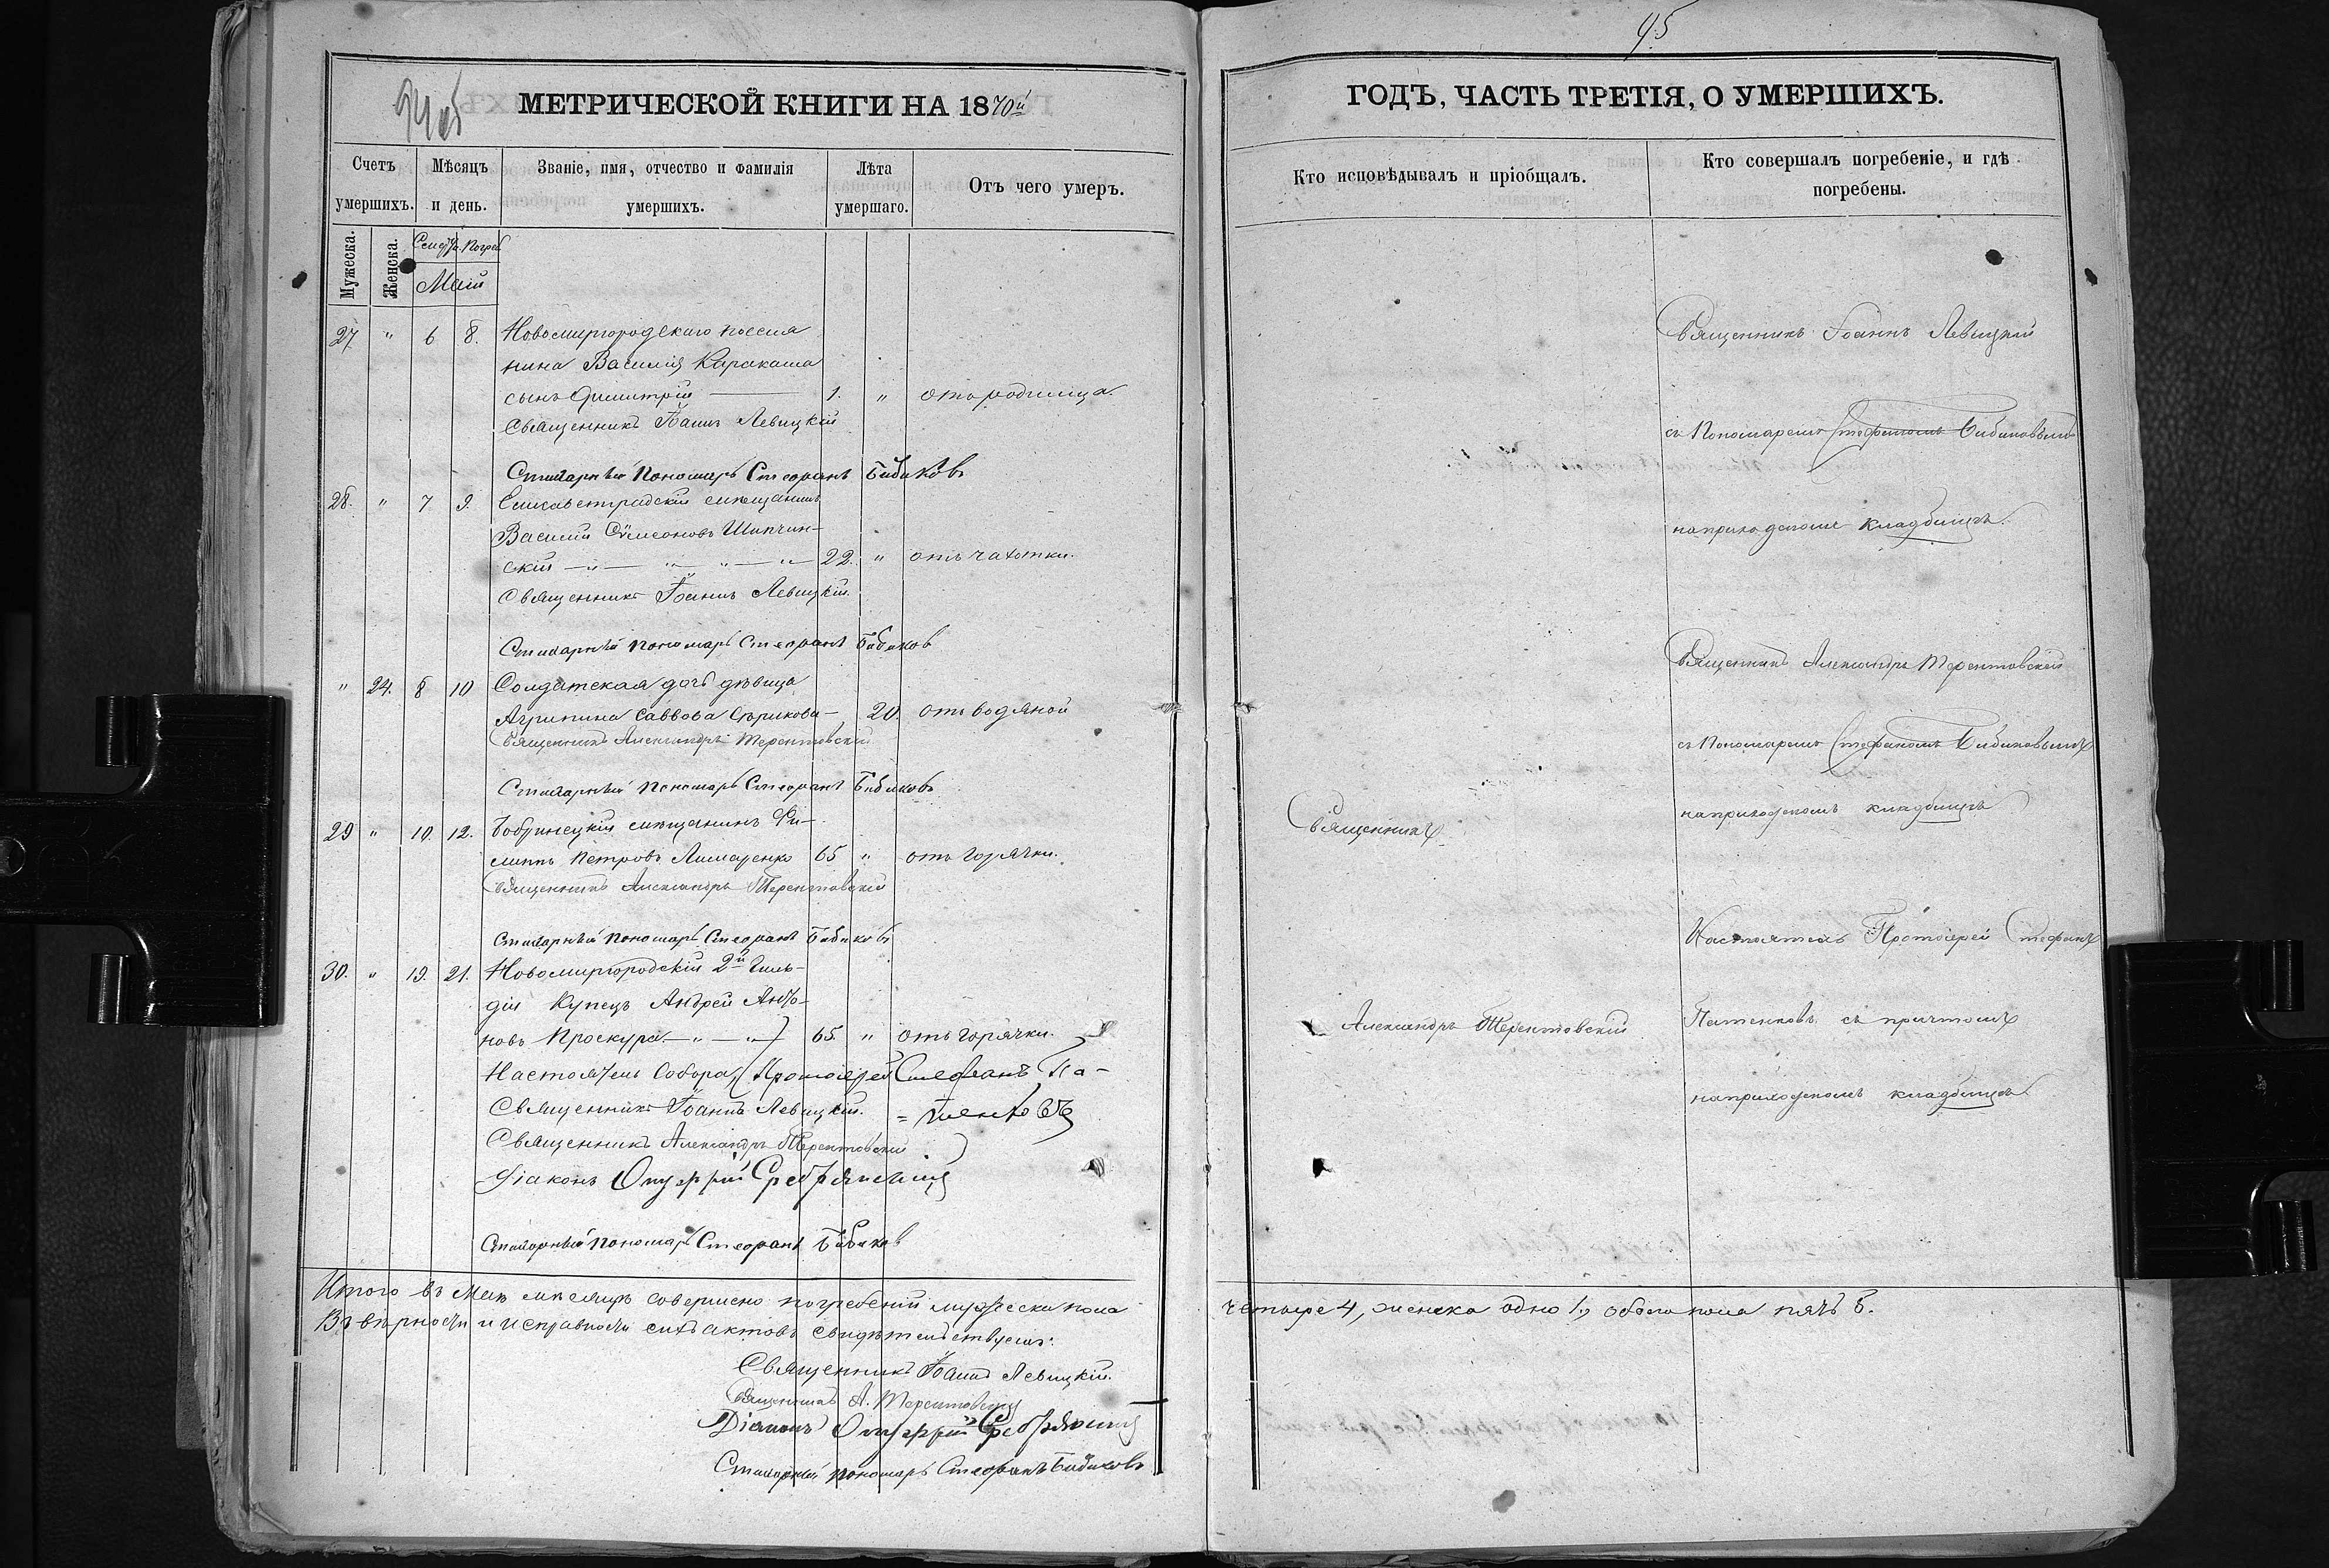 94 об
МЕТРИЧЕСКОЙ КНИГИ НА 1870й
Счетъ умершихъ.
Мѣсяцъ и день.
Званіе, имя, отчество и фамилія умершихъ.
Лѣта умершаго.
Отъ чего умеръ.
Мужеска.
Женска.
Смерт. Погреб
Маій
27 " 6 8. Новомиргородскаго поселя
нина Василія Каракаша
сынъ Димитрій 1. " отъ родимца.
Священникъ Іоаннъ Левицкій
Стихарный Пономарь Стефанъ Бибиковъ
28. " 7 9. Елисаветградскій мѣщанинъ
Василій Сѵмеоновъ Шипчин-
скій 22. " отъ чахотки.
Священникъ Іоаннъ Левицкій.
Стихарный пономарь Стефанъ Бибиков
" 24. 8 10 Солдатская дочь дѣвица
Агрипина Саввова Сѣрикова 20. отъ водяной
Священникъ Александръ Терентовскій
Стихарный Пономарь Стефанъ Бибиковъ
29 " 10. 12. Бобринецкій мѣщанинъ Фи-
липпъ Петровъ Лимаренко 65 " отъ горячки.
Священникъ Александръ Терентовскій
Стихарный пономарь Стефанъ Бибиковъ
30. " 19. 21. Новомиргородскій 2й Гиль-
діи Купецъ Андрей Анто-
новъ Проскура 65. " отъ горячки.
Настоятель Собора, Протоіерей Стефанъ Па-
Священникъ Іоаннъ Левицкій. =тенковъ
Священникъ Александръ Терентовскій
Діаконъ Онуфрій Сребрянскій
Стихарный пономарь Стефанъ Бибиков
Итого въ Маѣ мѣсяцѣ совершено погребеній мужеска пола
Въ вѣрности и исправности сихъ актовъ свидѣтельствуемъ:
Священникъ Іоаннъ Левицкій.
Священникъ А. Терентовскій
Діаконъ Онуфрій Сребрянскій
Стихарный пономарь Стефанъ Бибиковъ
95
ГОДЪ, ЧАСТЬ ТРЕТІЯ, О УМЕРШИХЪ.
Кто исповѣдывалъ и пріобщалъ.
Кто совершалъ погребеніе, и гдѣ
погребены.
Священникъ Іоаннъ Левицкій
съ Пономаремъ Стефаномъ Бибиковымъ
на приходскомъ кладбищѣ.
Священникъ Александръ Терентовскій
съ Пономаремъ Стефаномъ Бибиковымъ
на приходскомъ кладбищѣ
Священникъ
Настоятель Протоіерей Стефанъ
Александръ Терентовскій
Патенковъ съ причтомъ
на приходскомъ кладбищѣ
четыре 4, женска одно 1., обоего пола пять 5.